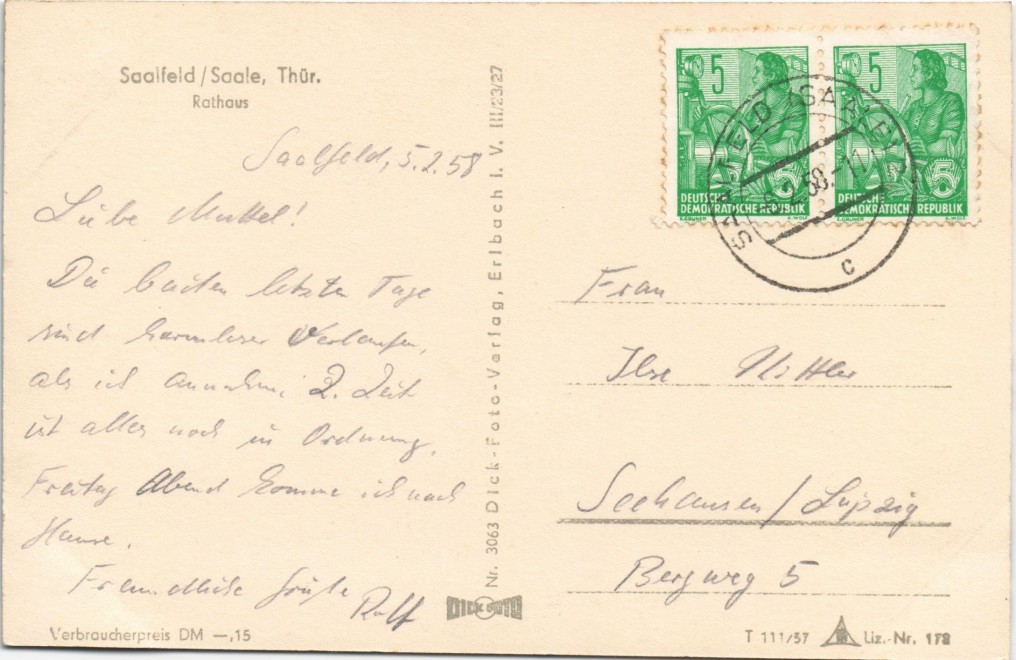 Saalfeld / Saale, Thür.
Rathaus
Saalfeld, 5.2.58
Liebe Muttel!
Die beiden letzten Tage
sind harmloser verlaufen,
als ich annahm. Z. Zeit
ist alles noch in Ordnung.
Freitag Abend komme ich nach
Hause.
Freundliche Grüße
Rolf
Verbraucherpreis DM —,15
Nr. 3063 Dick-Foto-Verlag, Erlbach i. V. III/23/27
DICK FOTO
5
DEUTSCHE
DEMOKRATISCHE REPUBLIK
5
DEUTSCHE
DEMOKRATISCHE REPUBLIK
SAALFELD (SAALE)
2.58.-11
c
Frau
Ilse
Seehausen / Leipzig
Bergweg 5
T 111/57 Liz.-Nr. 178